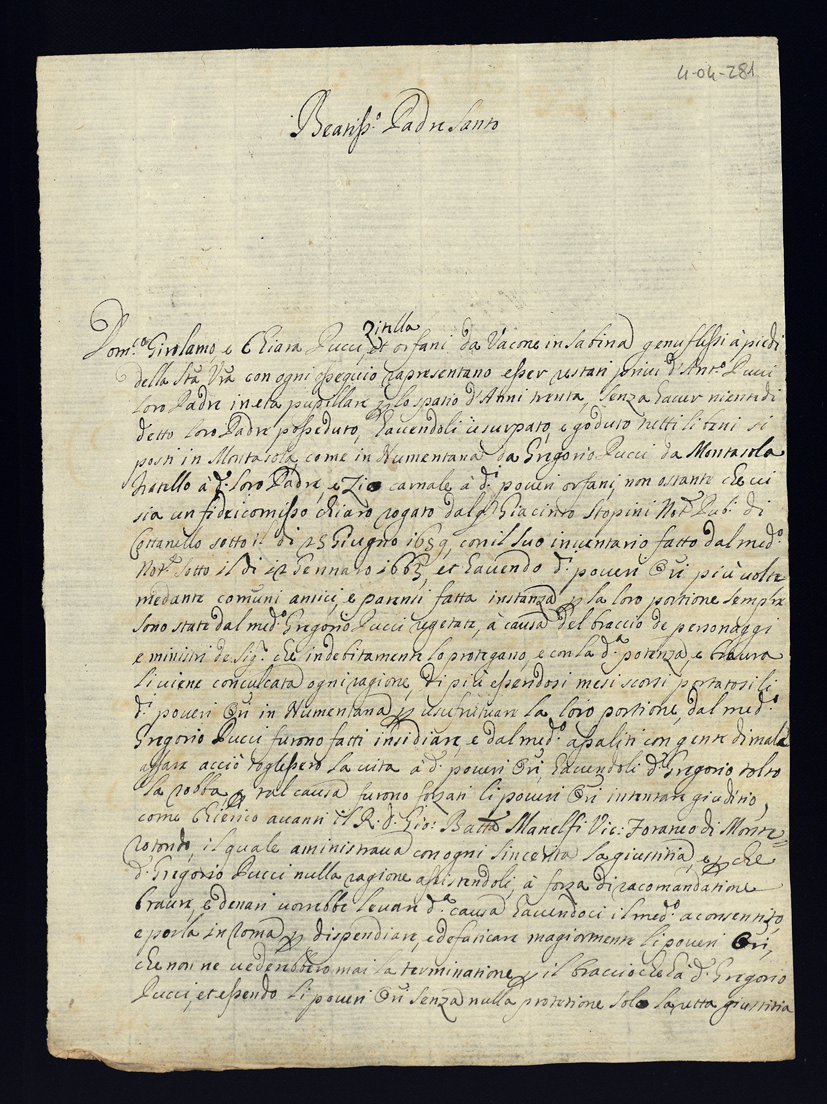 4-04-281
Beatiss.o Padre Santo
Zitella
Dom.co Girolamo, e Chiara Pucci et orfani da Vacone in Sabina genuflessi à piedi
della Stà Vrà con ogni ossequio rapresentano esser restati privi d'Ant.o Pucci
loro Padre in età pupillare, lo spatio d'Anni trenta, senza haver niente di
detto loro Padre posseduto, havendoli usurpato, e goduto tutti li beni si
posti in Montasola, come in Numentana da Gregorio Pucci da Montasola
fratello à d.o loro Padre, e Zio carnale à d.i poveri orfani, non ostante che vi
sia un fideicomisso chiaro rogato dal q Giacinto Stopini Not. Pub. di
Cottanello sotto il dì 25 Giugno 1659, con il suo inventario fatto dal med.o
Not. sotto il di 12 Gennaro 1665, et havendo d.i poveri Ori più volte
mediante comuni amici, e parenti fatta instanza p la loro portione sempre
sono state dal med.o Gregorio Pucci regetate, a causa del braccio de personaggi
e ministri de Sig.i che indebitamente lo protegano, e con la d.a potenza, e bravura
li viene conculcata ogni ragione, Di più essendosi mesi scorsi portatosi li
d.i poveri Ori in Numentana p usufrutuare la loro portione, dal med.o
Gregorio Pucci furono fatti insidiare, e dal med.o assaliti con gente di mal
affare acciò toglessero la vita a d.i poveri Ori, havendoli d.o Gregorio tolto
la robba p tal causa furono forzati li poveri Ori intentare giuditio,
come Chierico avanti il R. D. Gio: Batta Manelfi Vic: Foraneo di Monte
rotondo, il quale aministrava con ogni sincerità la giustitia, e p che
d.o Gregorio Pucci nulla ragione assistendoli, à forza di racomandatione
bravure, e denari vorrebbe levar d.a causa havendoci il med.o aconsentito
e porla in Roma p dispendiare, e defaticare magiormente li poveri Ori,
che non ne vederebbero mai la terminatione p il braccio che hà d.o Gregorio
Pucci, et essendo li poveri Ori senza nulla protetione solo la retta giustitia